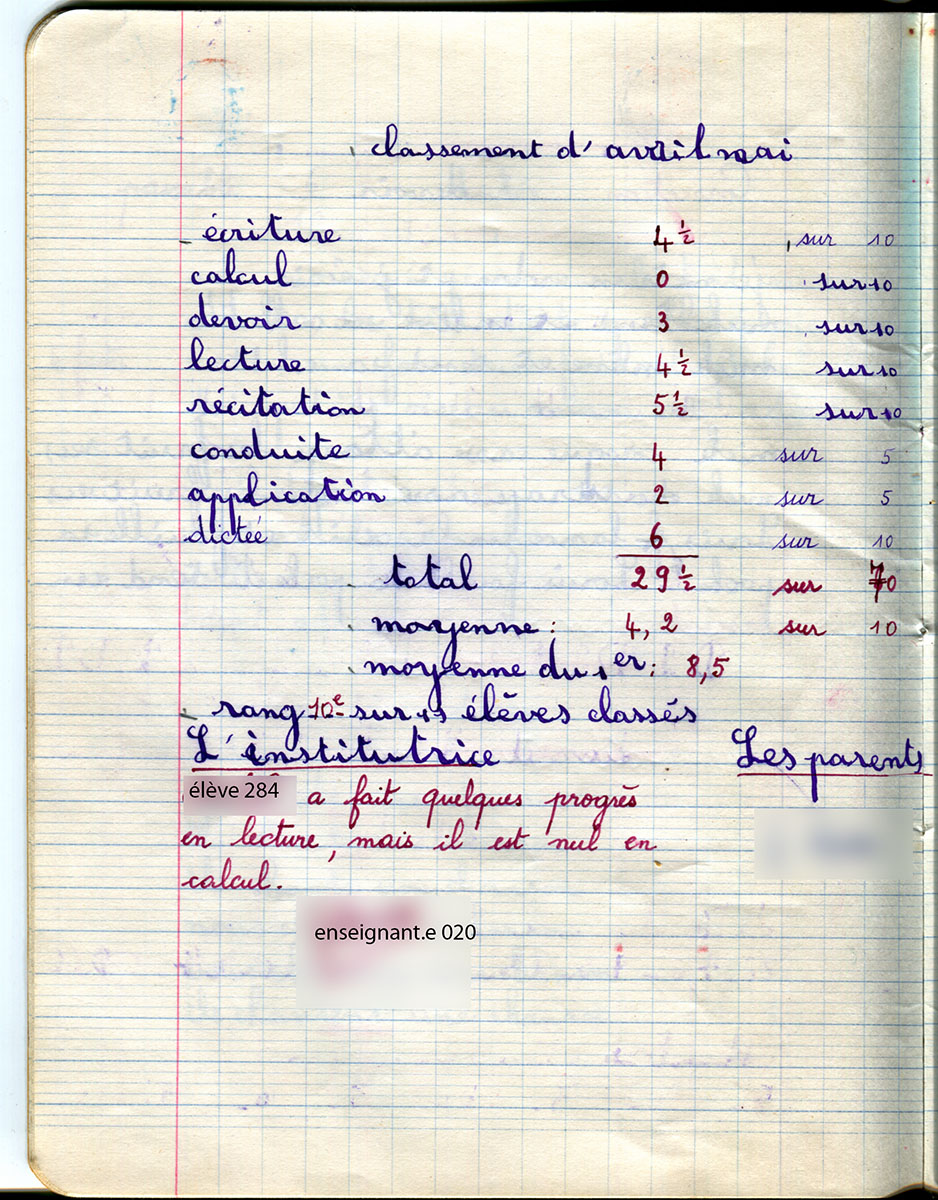 classement d'avril mai
écriture 4 ½ sur 10
calcul 0 sur 10
devoir 3 sur 10
lecture 4 ½ sur 10
récitation 5 ½ sur 10
conduite 4 sur 5
application 2 sur 5
dictée 6 sur 10
total 29 ½ sur 70
moyenne : 4,2 sur 10
moyenne du 1er : 8,5
rang 10e sur élèves classés
L'institutrice Les parents
élève 284 a fait quelques progrès
en lecture, mais il est nul en
calcul.
enseignant.e 020